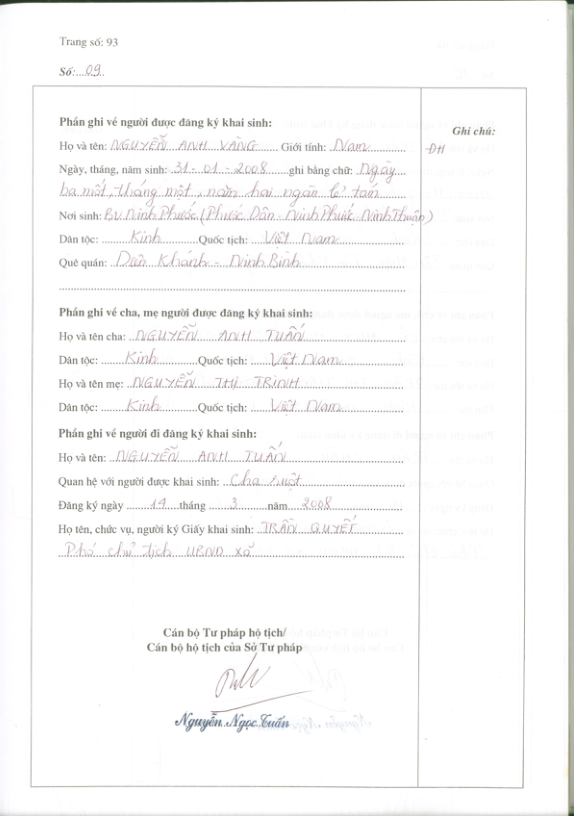 Trang số: 93
Số: 09
Phần ghi về người được đăng ký khai sinh:
Ghi chú:
Họ và tên: NGUYỄN ANH VÀNG Giới tính: Nam
ĐH
Ngày, tháng, năm sinh: 31-01-2008 ghi bằng chữ: Ngày
ba mốt, tháng một, năm hai ngàn lẻ tám
Nơi sinh: BV Ninh Phước (Phước Dân - Ninh Phước - Ninh Thuận)
Dân tộc: Kinh Quốc tịch: Việt Nam
Quê quán: Khánh - Ninh Bình
Phần ghi về cha, mẹ người được đăng ký khai sinh:
Họ và tên cha: NGUYỄN ANH TUẤN
Dân tộc: Kinh Quốc tịch: Việt Nam
Họ và tên mẹ: NGUYỄN THỊ TRINH
Dân tộc: Kinh Quốc tịch: Việt Nam
Phần ghi về người đi đăng ký khai sinh:
Họ và tên: NGUYỄN ANH TUẤN
Quan hệ với người được khai sinh: Cha ruột
Đăng ký ngày 14 tháng 3 năm 2008
Họ tên, chức vụ, người ký Giấy khai sinh: TRẦN QUYẾT
Phó chủ tịch UBND xã
Cán bộ Tư pháp hộ tịch/
Cán bộ hộ tịch của Sở Tư pháp
Nguyễn Ngọc Tuấn